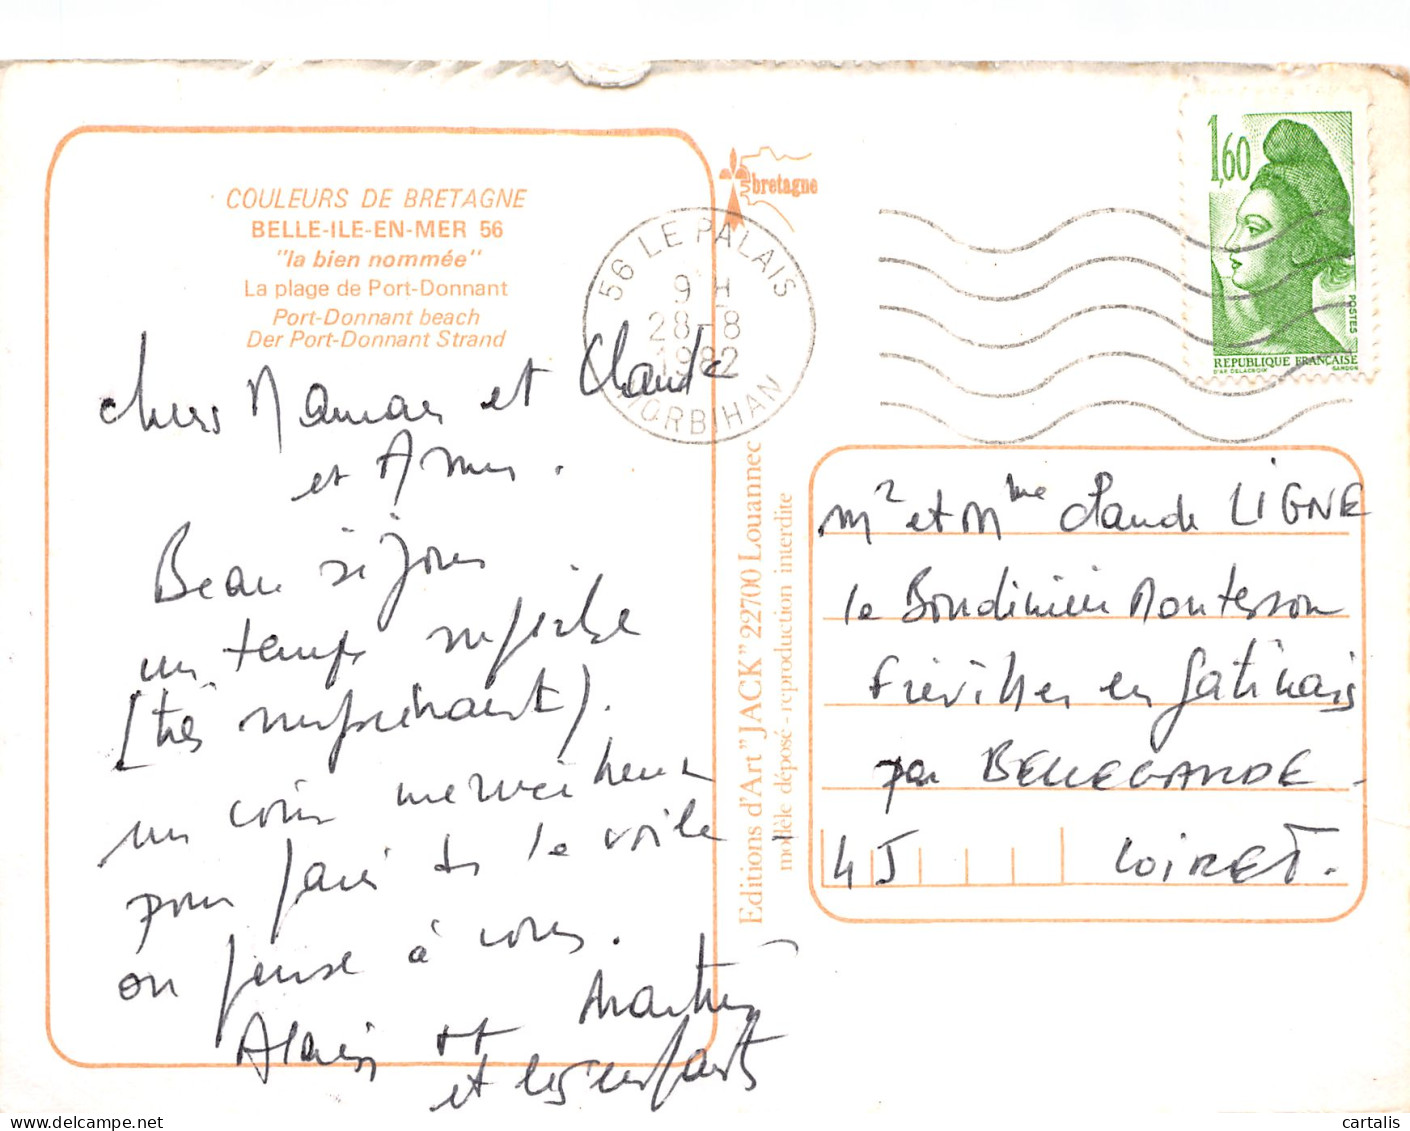 COULEURS DE BRETAGNE
BELLE-ILE-EN-MER 56
"la bien nommée"
La plage de Port-Donnant
Port-Donnant beach
Der Port-Donnant Strand
chers Maman et Claude
et Anne.
Beau séjour
un temps superbe
(très surprenant).
un coin merveilleux
pour faire de la voile
on pense à vous.
Alain et Martine
et les enfants
bretagne
56 LE PALAIS
9 H
28-8
1982
MORBIHAN
Editions d'Art "JACK" 22700 Louannec
modèle déposé - reproduction interdite
1,60
POSTES
REPUBLIQUE FRANÇAISE
D'AP. DELACROIX GANDON
Mr et Mme Claude LIGNE
le Montesson
Fréville en Gatinais
par BELLEGARDE
45 LOIRET.
cartalis